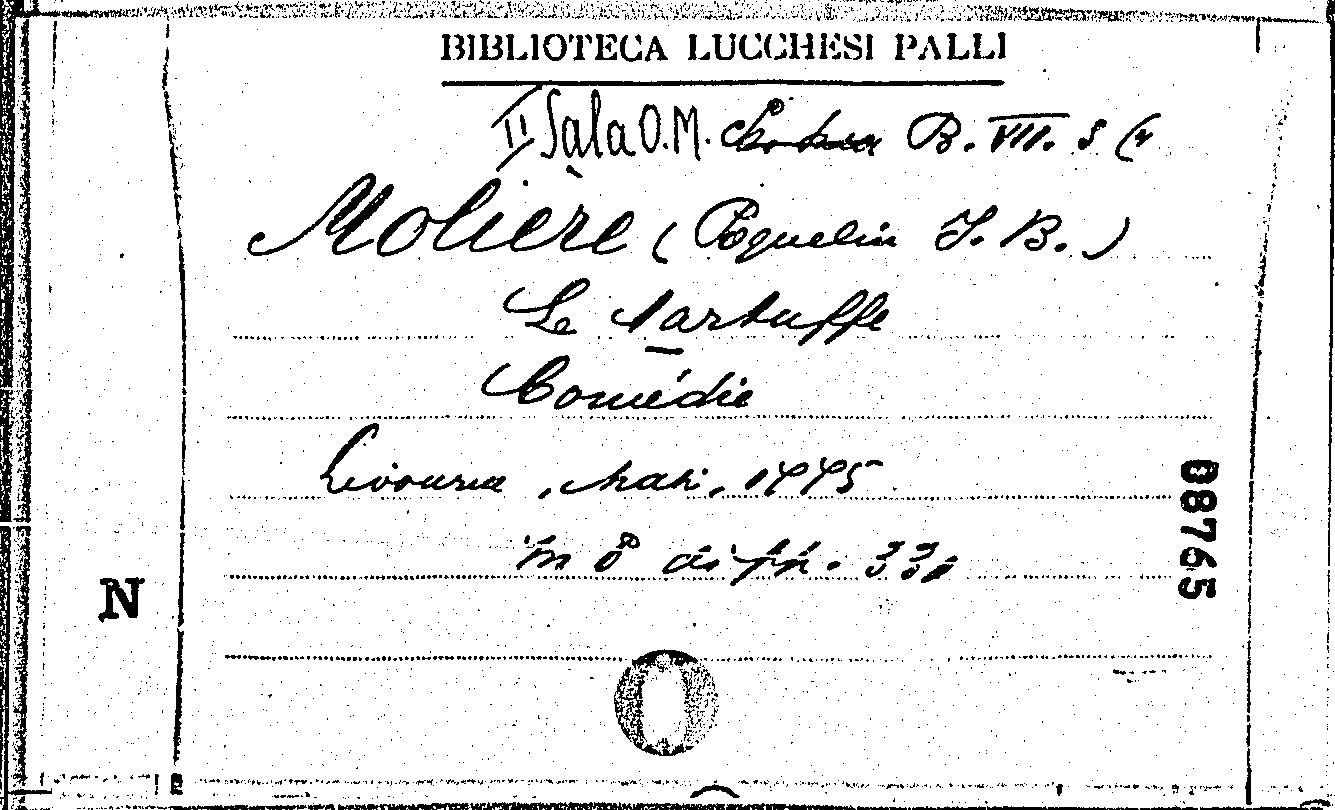 BIBLIOTECA LUCCHESI PALLI
II Sala O.M. B. VII. 5 (4
Molière (Poquelin J. B.)
Le Tartuffe
Comédie
Livourne, Masi, 1775
in 8° di pp.
88765
N